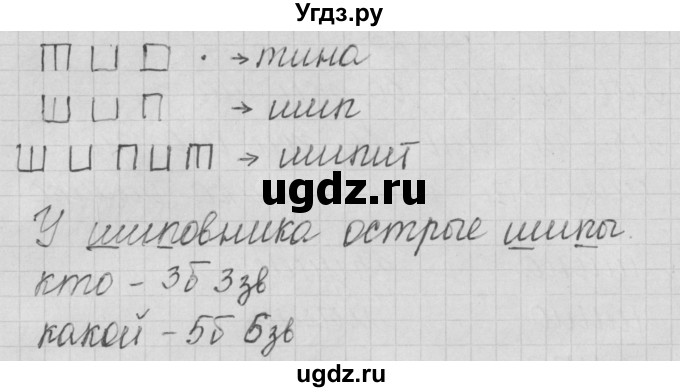 Угдз.ру
Т И П . → тина
Ш И П → шип
Ш И П И Т → шипит
ugdz.ru
У шиповника острые шипы.
кто - 3б 3зв
какой - 5б 5зв
ugdz.ru
ugdz.ru